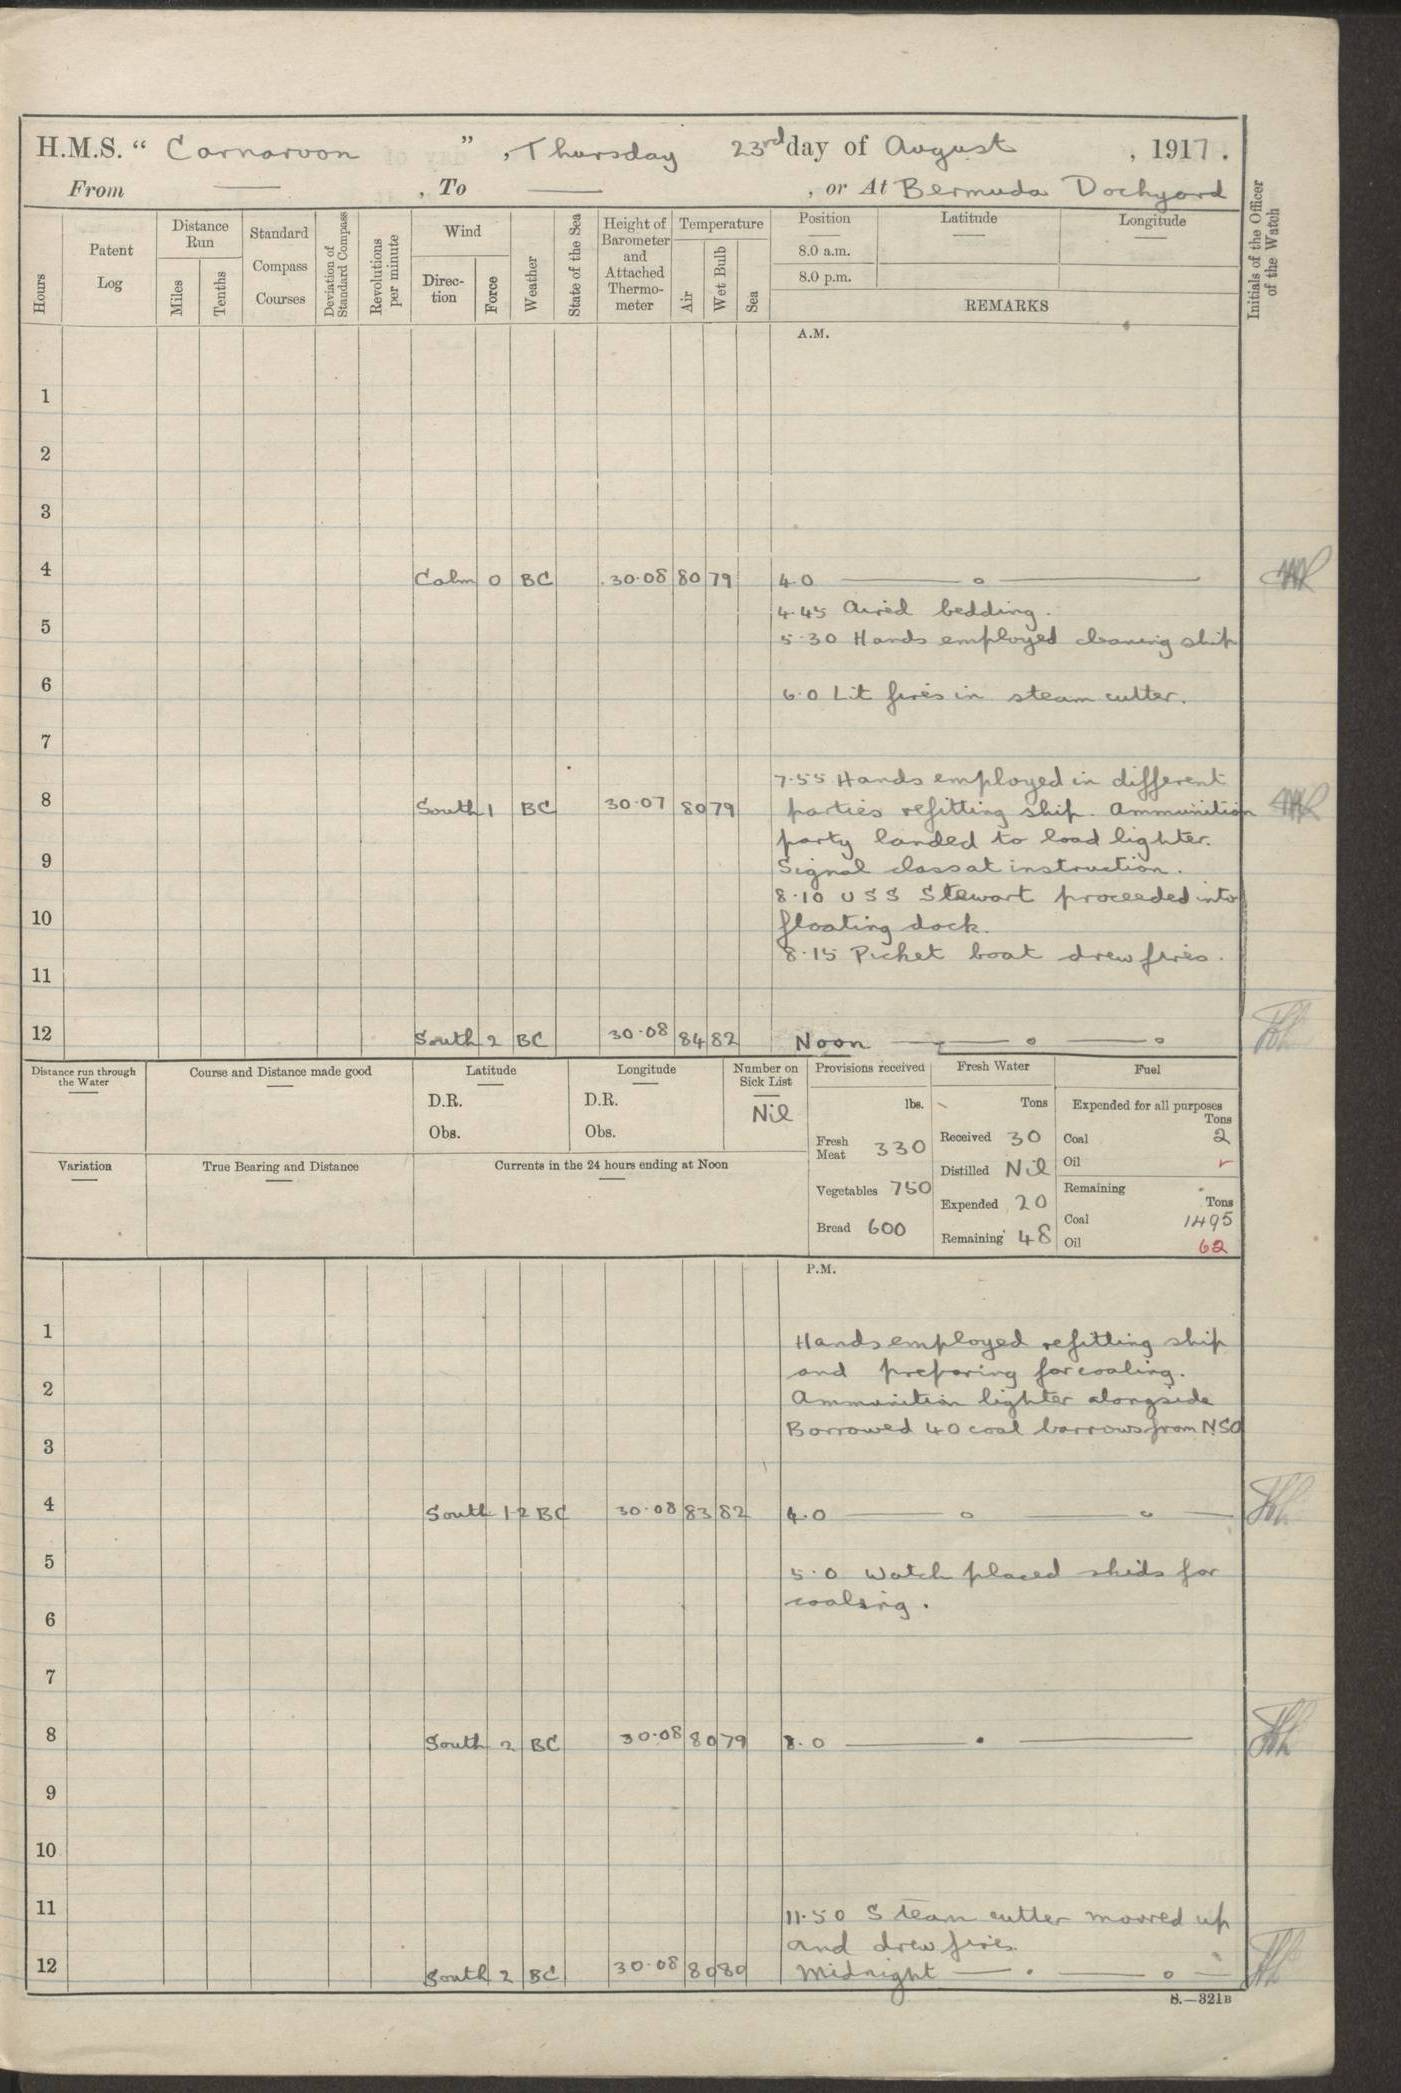 H.M.S. “ Carnarvon ” , Thursday 23rd day of August , 1917 .
From —— , To —— , or At Bermuda Dockyard
Hours
Patent Log
Distance Run
Miles
Tenths
Standard Compass Courses
Deviation of Standard Compass
Revolutions per minute
Wind
Direc-tion
Force
Weather
State of the Sea
Height of Barometer and Attached Thermo-meter
Temperature
Air
Wet Bulb
Sea
Position
8.0 a.m.
8.0 p.m.
Latitude
Longitude
REMARKS
Initials of the Officer of the Watch
A.M.
1
2
3
4 Calm 0 BC 30·08 80 79 4.0 —— o ——
4·45 Aired bedding.
5
5·30 Hands employed cleaning ship
6
6·0 Lit fires in steam cutter.
7
7·55 Hands employed in different
8 South 1 BC 30·07 80 79 parties refitting ship. Ammunition
party landed to load lighter.
9
Signal class at instruction.
8·10 USS Stewart proceeded into
10
floating dock.
8·15 Picket boat drew fires.
11
12 South 2 BC 30·08 84 82 Noon —— o —— o
Distance run through the Water
Course and Distance made good
Latitude
D.R.
Obs.
Longitude
D.R.
Obs.
Number on Sick List
Nil
Provisions received
lbs.
Fresh Meat 330
Vegetables 750
Bread 600
Fresh Water
Tons
Received 30
Distilled Nil
Expended 20
Remaining 48
Fuel
Expended for all purposes
Tons
Coal 2
Oil
Remaining
Tons
Coal 1495
Oil 62
Variation
True Bearing and Distance
Currents in the 24 hours ending at Noon
P.M.
1
Hands employed refitting ship
and preparing for coaling.
2
Ammunition lighter alongside
Borrowed 40 coal barrows from NSO
3
4 South 1-2 BC 30·08 83 82 4.0 —— o —— o ——
5
5·0 Watch placed skids for
coaling.
6
7
8 South 2 BC 30·08 80 79 8.0 —— . ——
9
10
11
11·50 Steam cutter moored up
and drew fires.
12 South 2 BC 30·08 80 80 Midnight —— . —— o —
S.—321B